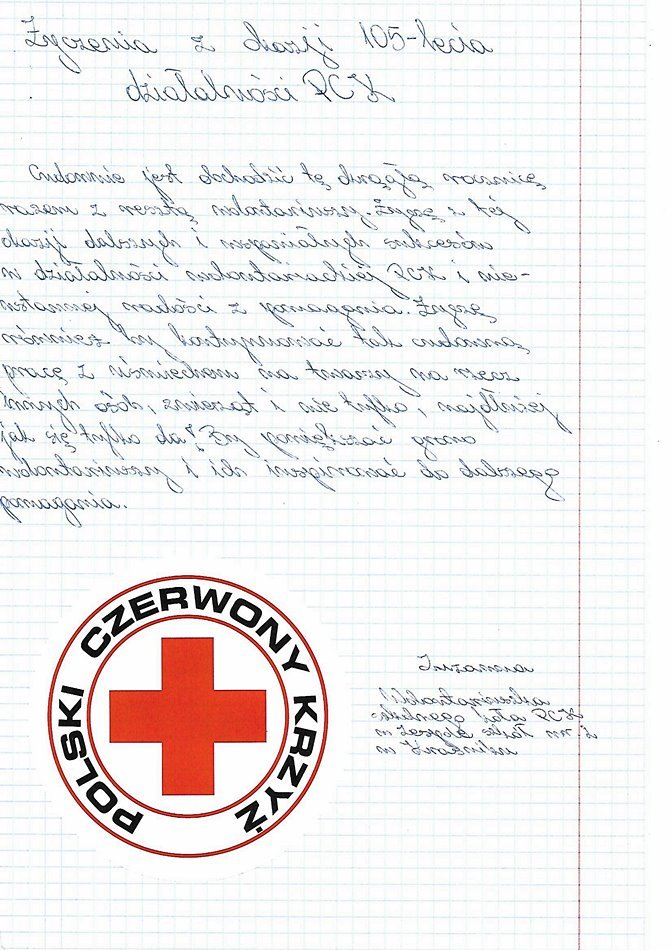 Życzenia z okazji 105-lecia
działalności PCK
Cudownie jest obchodzić tę okrągłą rocznicę
razem z resztą wolontariuszy. Życzę z tej
okazji dalszych i wspaniałych sukcesów
w działalności wolontariackiej PCK i nie-
ustannej radości z pomagania. Życzę
również by kontynuować tak cudowną
pracę z uśmiechem na twarzy na rzecz
innych osób, zwierząt i nie tylko, najdłużej
jak się tylko da! By powiększać grono
wolontariuszy i ich inspirować do dalszego
pomagania.
POLSKI CZERWONY KRZYŻ
Zuzanna
Wolontariuszka
szkolnego koła PCK
w Zespole Szkół nr 2
w Kraśniku